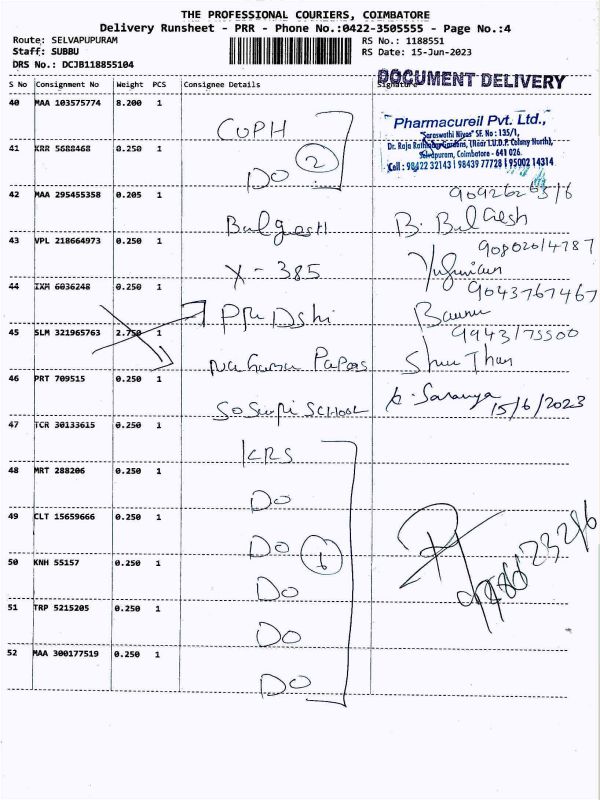 THE PROFESSIONAL COURIERS, COIMBATORE
Delivery Runsheet - PRR - Phone No.:0422-3505555 - Page No.:4
Route: SELVAPUPURAM
RS No.: 1188551
Staff: SUBBU
RS Date: 15-Jun-2023
DRS No.: DCJB118855104
DOCUMENT DELIVERY
S No Consignment No Weight PCS Consignee Details Signature
40 MAA 103575774 8.200 1 CUPH
Pharmacureil Pvt. Ltd.,
"Saraswathi Nivas" SF. No : 135/1,
Dr. Raja Rathinam Gardens, (Near T.U.D.P. Colony North),
Selvapuram, Coimbatore - 641 026.
Cell : 98422 32143 | 98439 77728 | 95002 14314
41 KRR 5688468 0.250 1 DO 2
42 MAA 295455358 0.205 1 Balgesh B. Balgesh
43 VPL 218664973 0.250 1 X - 385 9080204787
44 IXM 6036248 0.250 1 9043767467
45 SLM 321965763 2.750 1 Papers 9943175500
46 PRT 709515 0.250 1 School K. Saranya 15/6/2023
47 TCR 30133615 0.250 1 KRS
48 MRT 288206 0.250 1 DO
49 CLT 15659666 0.250 1 DO 6
50 KNH 55157 0.250 1 DO
51 TRP 5215205 0.250 1 DO
52 MAA 300177519 0.250 1 DO